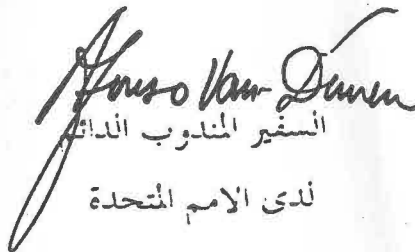 Afonso Van-Dúnem
السفير المندوب الدائم
لدى الامم المتحدة